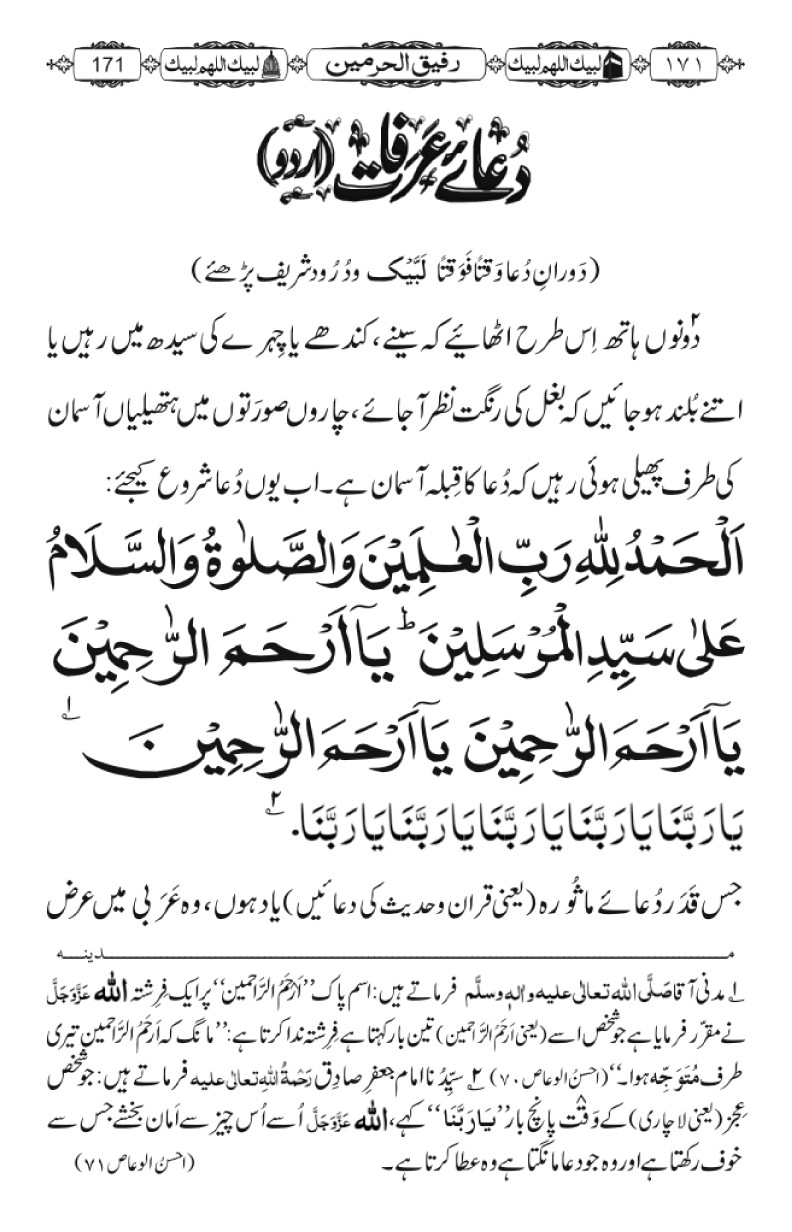 ۱۷۱ لبیك اللهم لبیك رفیق الحرمین لبیك اللهم لبیك 171
دُعائے عَرَفات (اردو)
(دَورانِ دُعا وَقتًا فَوَقتًا لَبَّیْک و دُرُود شریف پڑھئے)
دونوں ہاتھ اِس طرح اٹھائیے کہ سینے، کندھے یا چہرے کی سیدھ میں رہیں یا
اتنے بُلند ہو جائیں کہ بغل کی رنگت نظر آجائے، چاروں صورَتوں میں ہتھیلیاں آسمان
کی طرف پھیلی ہوئی رہیں کہ دُعا کا قِبلہ آسمان ہے۔ اب یوں دُعا شروع کیجئے:
اَلْحَمْدُ لِلّٰهِ رَبِّ الْعٰلَمِیْنَ وَالصَّلٰوةُ وَالسَّلَامُ
عَلٰی سَیِّدِ الْمُرْسَلِیْنَ ؕ یَاۤ اَرْحَمَ الرّٰحِمِیْنَ
یَاۤ اَرْحَمَ الرّٰحِمِیْنَ یَاۤ اَرْحَمَ الرّٰحِمِیْنَ ۱؎
یَا رَبَّنَا یَا رَبَّنَا یَا رَبَّنَا یَا رَبَّنَا یَا رَبَّنَا۔ ۲؎
جس قَدَر دُعائے ماثُورہ (یعنی قران و حدیث کی دعائیں) یاد ہوں، وہ عَرَبی میں عرض
مــــدینـــہ
۱؎ مدنی آقا صَلَّی اللہ تعالٰی علیہ واٰلہٖ وسلَّم فرماتے ہیں: اسمِ پاک ’’اَرْحَمُ الرَّاحِمِین‘‘ پر ایک فِرِشتہ اللہ عَزَّوَجَلَّ
نے مقرّر فرمایا ہے جو شخص اسے (یعنی اَرْحَمُ الرَّاحِمین) تین بار کہتا ہے فِرِشتہ ندا کرتا ہے: ’’مانگ کہ اَرحَمُ الرَّاحِمین تیری
طرف مُتَوَجِّہ ہوا۔‘‘ (احسن الوعاص ۷۰) ۲؎ سیِّدُنا امام جعفرِ صادِق رَحْمۃُ اللہِ تعالٰی علیہ فرماتے ہیں: جو شخص
عِجز (یعنی لاچاری) کے وَقْت پانچ بار ’’یَا رَبَّنَا‘‘ کہے، اللہ عَزَّوَجَلَّ اُسے اُس چیز سے اَمان بخشے جس سے
خوف رکھتا ہے اور وہ جو دعا مانگتا ہے وہ عطا کرتا ہے۔ (احسن الوعاص ۷۱)